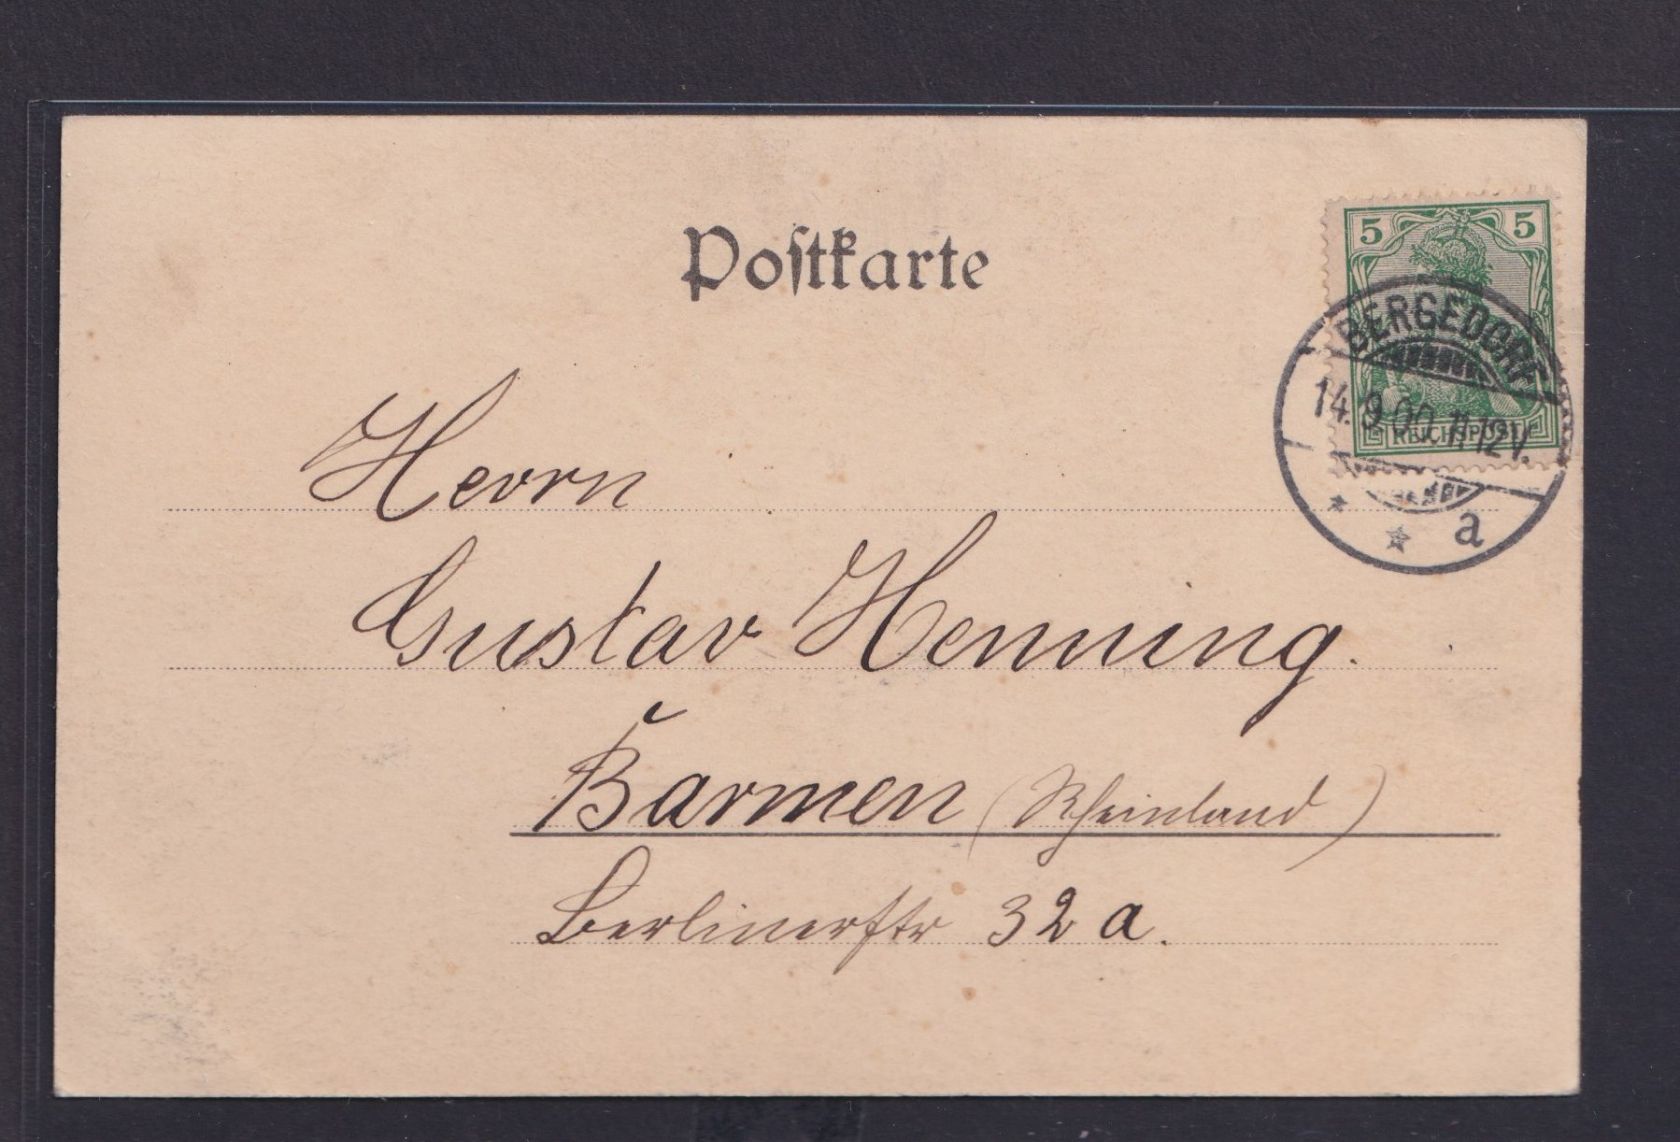 Postkarte
5 5
REICHSPOST
BERGEDORF
14.9.00.11-12V.
* * a
Herrn
Gustav Henning.
Barmen (Rheinland)
Berlinerstr 32 a.